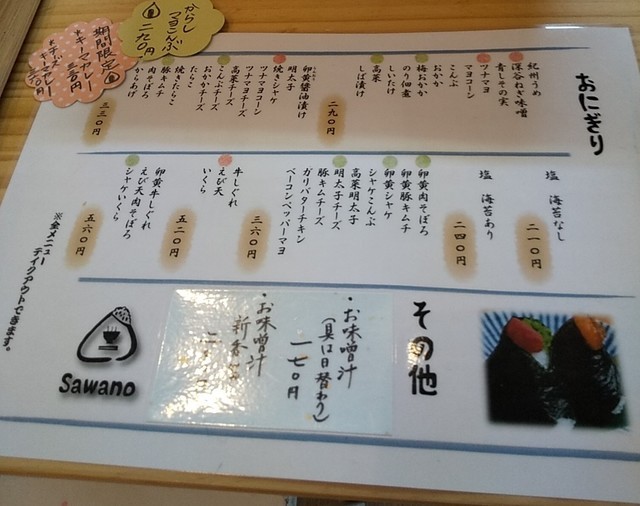 からし
マヨこんぶ
二九〇円
期間限定
おにぎり
紀州うめ
深谷ねぎ味噌
青しその実
ツナマヨ
マヨコーン
こんぶ
おかか
梅おかか
のり佃煮
しいたけ
高菜
しば漬け
二九〇円
卵黄醤油漬け
明太子
焼きシャケ
ツナマヨコーン
ツナマヨチーズ
高菜チーズ
こんぶチーズ
おかかチーズ
たらこ
焼きたらこ
豚キムチ
肉そぼろ
からあげ
三三〇円
塩　海苔なし
二一〇円
塩　海苔あり
二四〇円
卵黄肉そぼろ
卵黄豚キムチ
卵黄シャケ
シャケこんぶ
高菜明太子
明太子チーズ
豚キムチーズ
ガリバターチキン
ベーコンペッパーマヨ
三六〇円
牛しぐれ
えび天
いくら
五二〇円
卵黄牛しぐれ
えび天肉そぼろ
シャケいくら
五六〇円
※全メニュー
テイクアウトできます。
その他
・お味噌汁
(具は日替わり)
一七〇円
・お味噌汁
Sawano